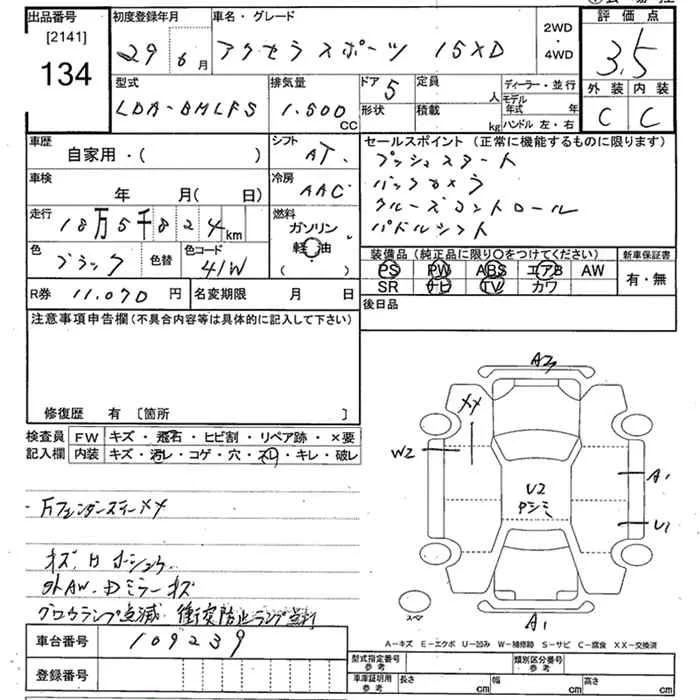 出品番号 初度登録年月 車名・グレード 2WD・4WD 評価点
[2141]
134
29 6月 アクセラスポーツ 15XD 3.5
型式 排気量 ドア 5 定員 人 ディーラー・並行 外装 内装
LDA-DMLFS 1.500 CC 形状 積載 kg モデル年式 年 C C
ハンドル 左・右
車歴 シフト セールスポイント (正常に機能するものに限ります)
自家用・( ) AT. プッシュスタート
車検 冷房 バックカメラ
年 月( 日) AAC クルーズコントロール
走行 燃料 パドルシフト
18万5千824km ガソリン
軽油
( )
色 ブラック 色替 色コード 41W
装備品 (純正品に限り〇をつけてください) 新車保証書
PS PW ABS エアB AW 有・無
SR ナビ TV カワ
R券 11.070 円 名変期限 月 日 後日品
注意事項申告欄 (不具合内容等は具体的に記入して下さい)
修復歴 有 [箇所 ]
検査員 FW キズ・飛石・ヒビ割・リペア跡・×要
記入欄 内装 キズ・汚レ・コゲ・穴・スレ・キレ・破レ
A2
XX
W2
A1
U2
Pシミ
U1
A1
スペア
・万フェンダースティーメメ
キズ、H ホシュウ
外AW、Dミラーキズ
グロウランプ点滅 衝突防止ランプ点灯
車台番号 109239
登録番号
A-キズ E-エクボ U-凹み W-補修跡 S-サビ C-腐食 XX-交換済
型式指定番号 参考 類別区分番号 参考
車庫証明用 参考 長さ cm 幅 cm 高さ cm